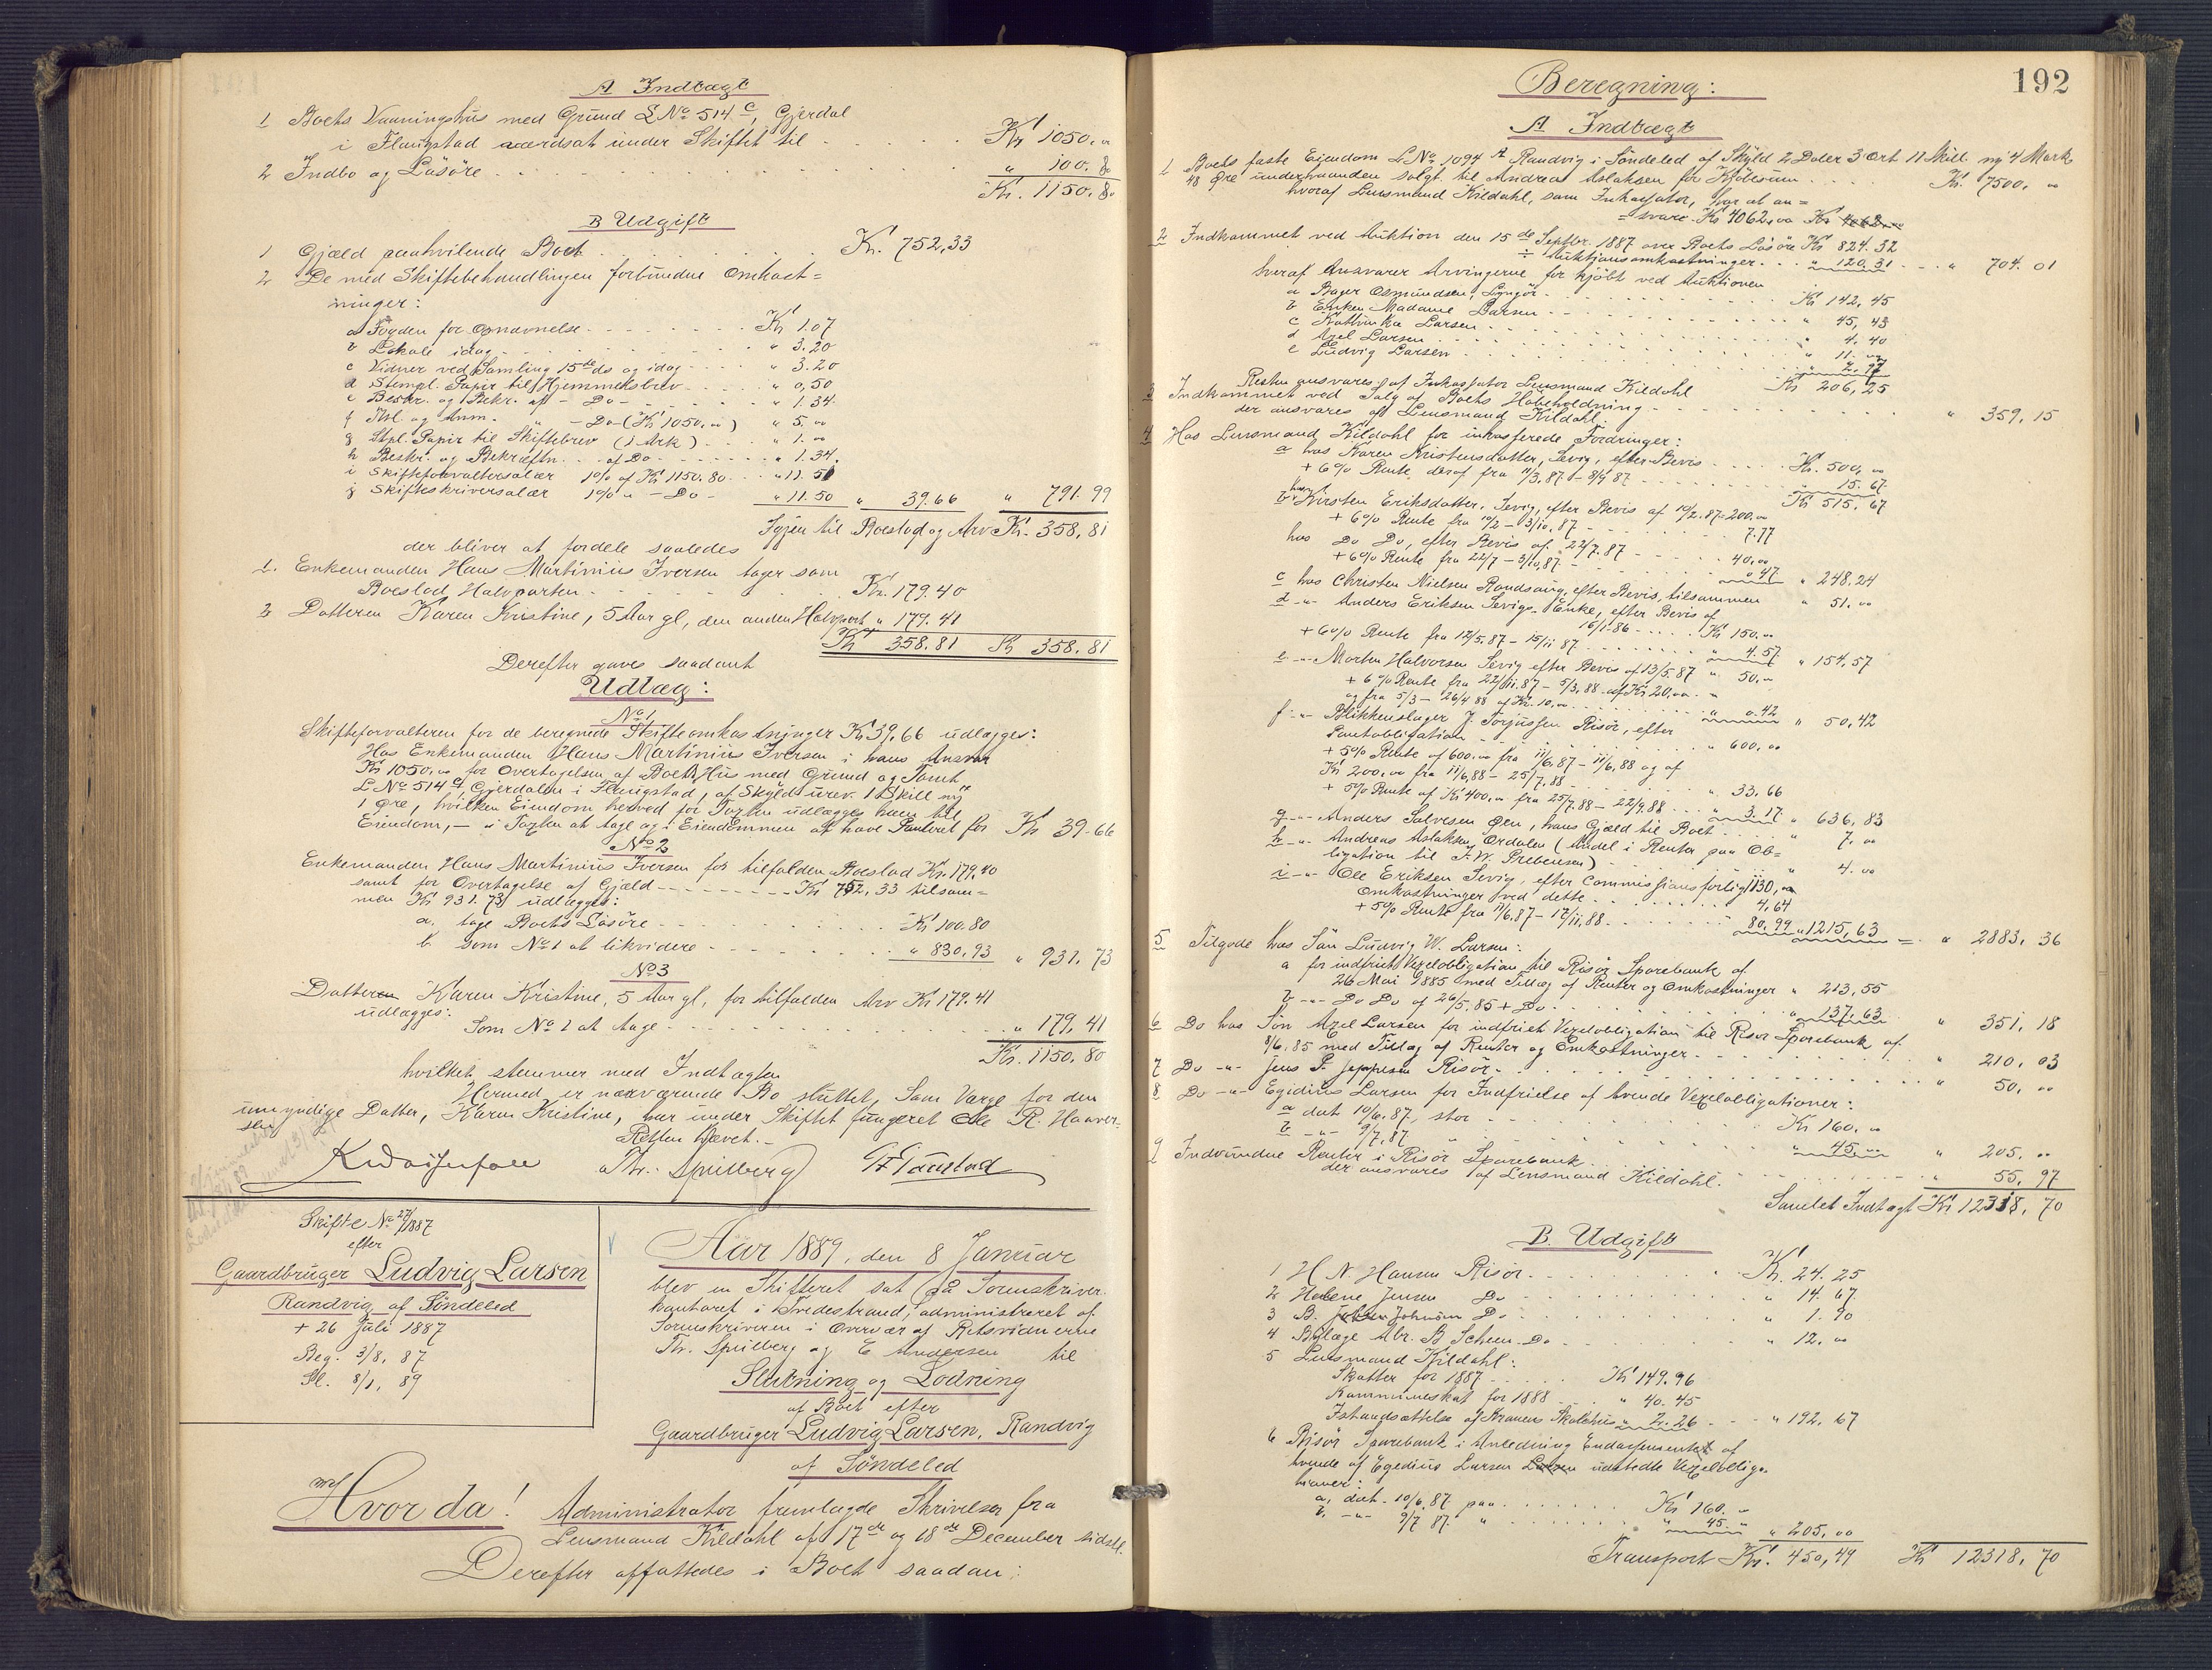 A Indtægt
1 Boets Vaaningshus med Grund L No 514 c, Gjerdal
i Flangstad værdsat under Skiftet til . . . . . Kr 1050. "
2 Indbo og Løsøre . . . . . . . . . . " 100. 80
Kr. 1150. 80
B Udgift
1 Gjæld paahvilende Boet . . . . . . Kr. 752,33
2 De med Skiftebehandlingen forbundne Omkost=
ninger:
a Fogden for Opnævnelse . . . . Kr 1.07
b Lokale idag . . . . " 3.20
c Vidner ved Samling 15de ds og idag . . . " 3.20
d Stempl. Papir til Hjemmelsbrev . . . " 0,50
e Beskr. og Bekr. af - Do - . . . " 1.34
f Thl og Anm. " - Do - (Kr 1050. ") " 5. "
g Stpl. Papir til Skiftebrev (1 Ark) . . . " 1. "
h Beskr. og Bekræftn. . . af Do . . . " 1.34.
i Skifteforvaltersalær 1 % af Kr 1150.80 . . . " 11.51
j Skifteskriversalær 1 % " - Do - " 11.50 " 39.66 " 791.99
Igjen til Boeslod og Arv Kr. 358,81
der bliver at fordele saaledes
1. Enkemanden Hans Martinius Iversen tager som
Boeslod Halvparten . . . . . . Kr. 179.40
2 Datteren Karen Kristine, 5 Aar gl, den anden Halvpart " 179.41
Kr 358.81 Kr 358.81
Derefter gaves saadant
Udlæg:
No 1
Skifteforvalteren for de beregnede Skifteomkostninger Kr 39.66 udlægges:
Hos Enkemanden Hans Martinius Iversen i hans Ansvar
Kr 1050. " for Overtagelsen af Boets Hus med Grund og Tomt
L No 514 c, Gjerdalen i Flangstad, af Skyld urev. 1 Skill ny
1 Øre, hvilken Eiendom herved for Taxten udlægges ham til
Eiendom, — i Taxten at tage og i Eiendommen at have Panteret for Kr 39.66
No 2
Enkemanden Hans Martinius Iversen for tilfalden Boeslod Kr. 179.40
samt for Overtagelse af Gjæld . . . . Kr 752,33 tilsam=
men Kr 931.73 udlægges:
a, tage Boets Løsøre . . . . . Kr 100.80
b som No 1 at likvidere . . . . " 830.93 " 931.73
No 3
Datteren Karen Kristine, 5 Aar gl, for tilfalden Arv Kr 179.41
udlægges:
Som No 2 at tage . . . . . . " 179,41
Kr. 1150.80
hvilket stemmer med Indtægten
Hermed er nærværende Bo sluttet. Som Værge for den
umyndige Datter, Karen Kristine, har under Skiftet fungeret Ole R. Haaver-
sen
Retten hævet. —
Th. Spilberg
Skifte No 27/1887
efter
Gaardbruger Ludvig Larsen
Randvig af Søndeled
+ 26 Juli 1887
Beg. 3/8, 87
Sl. 8/1, 89
Aar 1889, den 8 Januar
blev en Skifteret sat på Sorenskriver-
kontoret i Tvedestrand, administreret af
Sorenskriveren i Overvær af Retsvidnerne
Th. Spilberg og E Andersen til
Slutning og Lodning
af Boet efter
Gaardbruger Ludvig Larsen, Randvig
af Søndeled
Hvorda! Administrator fremlagde Skrivelser fra
Lensmand Kildahl af 17de og 18de December sidstl.
Derefter affattedes i Boet saadan:
192
Beregning:
A Indtægt
1 Boets faste Eiendom L No 1094 A Randvig i Søndeled af Skyld 2 Daler 3 Ort 11 Skill. ny 4 Mark
48 Øre underhaanden solgt til Andreas Aslaksen for Kjøbesum . . . Kr. 7500. "
hvoraf Lensmand Kildahl, som Inkassator, har at an=
svare Kr 4062. "
2 Indkommet ved Auktion den 15de Septbr. 1887 over Boets Løsøre Kr 824.32
÷ Auktionsomkostninger . . . " 120.31 . . . " 704.01
hvoraf Ansvarer Arvingerne for kjøbt ved Auktionen
a Bager Osmundsen, Lyngør . . . . Kr 142,45
b Enken Madame Larsen . . . " 45,43
c Kathinka Larsen . . . " 4.40
d Axel Larsen . . . " 11. "
e Ludvig Larsen . . . " 2.97
Kr 206,25
Resten ansvares af Inkassator Lensmand Kildahl
3 Indkommet ved Salg af Boets Høbeholdning . . . . " 359.15
der ansvares af Lensmand Kildahl.
4 Hos Lensmand Kildahl for inkasserede Fordringer:
a hos Karen Kristensdatter, Sevig, efter Bevis . . . Kr. 500. "
+ 6 % Rente deraf fra 11/3.87 - 3/9 87 . . . " 15.67.
Kr 515.67
b hos Kirsten Eriksdatter, Sevig, efter Bevis af 10/2.87 - 200. "
+ 6 % Rente fra 10/2 - 3/10.87 . . . 7.77
hos Do Do, efter Bevis af 22/7.87 . . . 40. "
+ 6 % Rente fra 22/7 - 3/10.87 . . . " 0.47 " 248.24
c hos Christen Nielsen Randsaug, efter Bevis, tilsammen " 51. "
d - " - Anders Eriksen Sevigs Enke, efter Bevis af
16/1-86 . . . Kr 150. "
+ 6 % Rente fra 12/5.87 - 15/11 87 . . . " 4.57 " 154.57
e - " - Morten Halvorsen Sevig efter Bevis af 13/5.87 " 50. "
+ 6 % Rente fra 22/11.87 - 5/3.88 af Kr 20. "
og fra 5/3 - 26/4 88 af Kr. 10. " . . . " 0.42 " 50,42
f - " - Blikkenslager J. Torjussen Risør, efter
Pantobligation . . . " 600. "
+ 5 % Rente af 600. " fra 11/6.87 - 11/6.88 og af
Kr 200. " fra 11/6.88 - 25/7.88 . . . " 33.66
+ 5 % Rente af Kr 400. " fra 25/7.88 - 22/9.88 . . . " 3.17 " 636,83
g - " - Anders Salvesen Øen, hans Gjæld til Boet . . . " 7. "
h - " - Andreas Aslaksen Ørdalen (Andel i Renter paa Ob=
ligation til F. W. Prebensen) . . . " 4. "
i - " - Ole Eriksen Sevig, efter Commissionsforlig 1130. "
Omkostninger ved dette . . . 4,64
+ 5 % Rente fra 11/6.87 - 17/11.88 . . . 80,99 " 1215,63 = " 2883.36
5 Tilgode hos Søn Ludvig W. Larsen:
a for indfriet Vexelobligation til Risør Sparebank af
26 Mai 1885 med Tillæg af Renter og Omkostninger " 213,55
b - " - Do Do af 26/5.85 + Do . . . " 137.63 " 351.18
6 Do hos Søn Axel Larsen for indfriet Vexelobligation til Risør Sparebank af
8/6.85 med Tillæg af Renter og Omkostninger . . . " 210.03
7 Do - " - Jens P. Jeppesen Risør . . . " 50. "
8 Do - " - Egidius Larsen for Indfrielse af tvende Vexelobligationer:
a dat 10/6.87, stor . . . Kr 160. "
b - " - 9/7.87 . . . " 45. " " 205. "
9 Indvundne Renter i Risør Sparebank . . . " 55.97
der ansvares af Lensmand Kildahl.
Samlet Indtægt Kr 12318,70
B. Udgift
1 H N. Hansen Risør . . . Kr. 24.25
2 Helene Jensen Do . . . " 14.67
3 B. Johnsen Do . . . " 1.90
4 Bylæge Abr. B Scheen Do . . . " 12. "
5 Lensmand Kildahl:
Skatter for 1887 . . . Kr 149.96
Kommuneskat for 1888 . . . " 40.45
Istandsættelse af Kranens Skolehus " 2.26 . . . " 192.67
6 Risør Sparebank i Anledning Endossementet af
tvende af Egedius Larsen udstedte Vexelobliga-
tioner:
a, dat. 10/6.87 paa . . . Kr 160. "
b, - " - 9/7 87. " . . . " 45. " " 205. "
Transport Kr. 450,49 Kr 12318.70